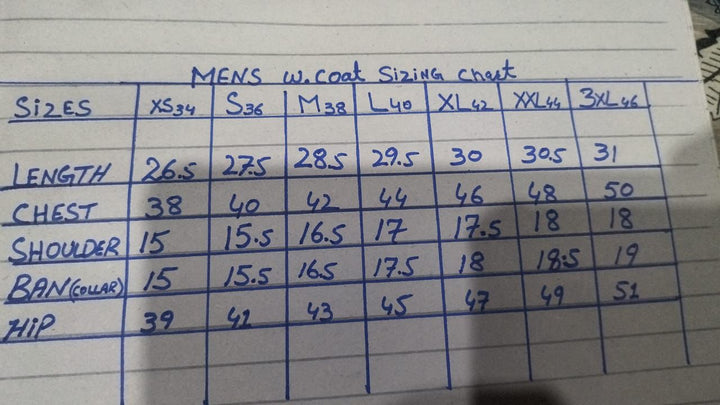 MENS W.Coat SiZiNG Chart
SiZES XS34 S36 M38 L40 XL42 XXL44 3XL46
LENGTH 26.5 27.5 28.5 29.5 30 30.5 31
CHEST 38 40 42 44 46 48 50
SHOULDER 15 15.5 16.5 17 17.5 18 18
BAN (COLLAR) 15 15.5 16.5 17.5 18 18.5 19
HiP 39 41 43 45 47 49 51